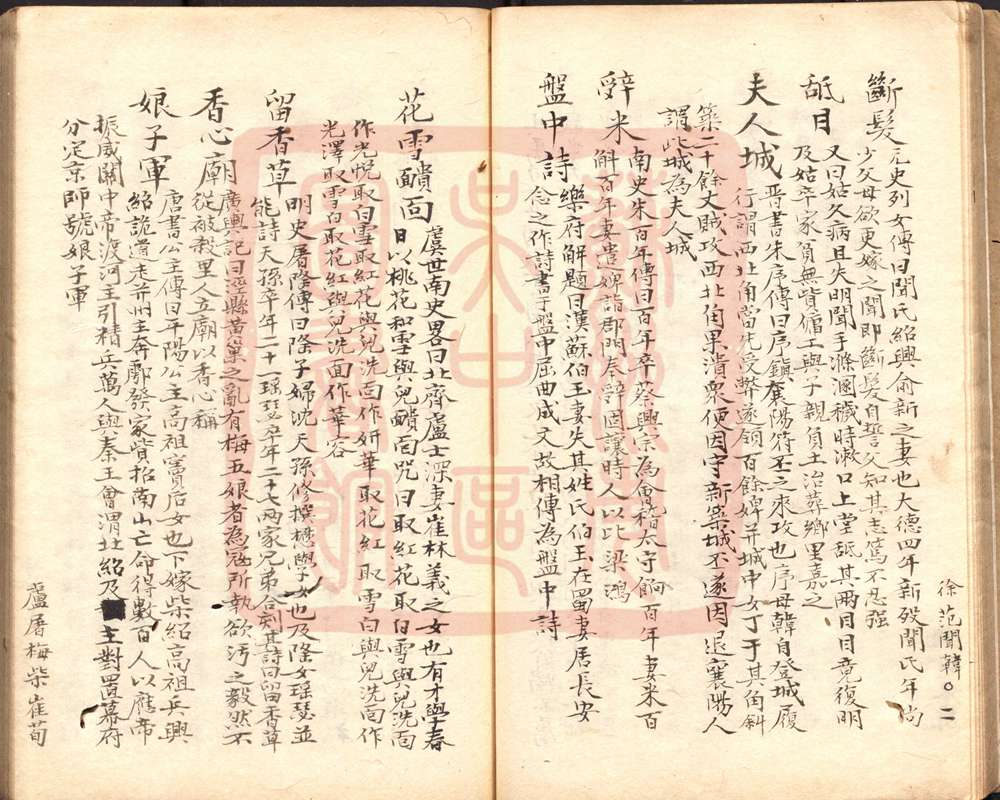 徐范聞韓○二
斷髮 元史列女傳曰聞氏紹興俞新之妻也大德四年新歿聞氏年尚
少父母欲更嫁之聞即斷髮自誓父知其志篤不忍強
舐目 又曰姑久病且失明聞手滌溷穢時漱口上堂舐其兩目目竟復明
及姑卒家貧無貲傭工與子親負土治葬鄉里嘉之
夫人城 晉書朱序傳曰序鎮襄陽符丕之來攻也序母韓自登城履
行謂西北角當先受弊遂領百餘婢并城中女丁于其角斜
築二十餘丈賊攻西北角果潰眾便因守新築城丕遂因退襄陽人
謂此城為夫人城
辭米 南史朱百年傳曰百年卒蔡興宗為會稽太守餉百年妻米百
斛百年妻遣婢詣郡門奉辭固讓時人以比梁鴻
盤中詩 樂府解題曰漢蘇伯玉妻失其姓氏伯玉在蜀妻居長安
念之作詩書于盤中屈曲成文故相傳為盤中詩
花雪靧面 虞世南史畧曰北齊盧士深妻崔林義之女也有才學春
日以桃花和雪與兒靧面咒曰取紅花取白雪與兒洗面
作光悅取白雪取紅花與兒洗面作妍華取花紅取雪白與兒洗面作
光澤取雪白取花紅與兒洗面作華容
留香草 明史屠隆傳曰隆子婦沈天孫修撰懋學女也及隆女瑤瑟並
能詩天孫卒年二十一瑤瑟卒年二十七兩家兄弟合刻其詩曰留香草
香心廟 廣輿記曰涇縣黃巢之亂有梅五娘者為寇所執欲污之毅然不
從被殺里人立廟以香心稱
娘子軍 唐書公主傳曰平陽公主高祖竇后女也下嫁柴紹高祖兵興
紹詭道走并州主奔鄠發家貲招南山亡命得數百人以應帝
振威關中帝渡河主引精兵萬人與秦王會渭北紹及主對置幕府
分定京師號娘子軍
盧屠梅柴崔荀